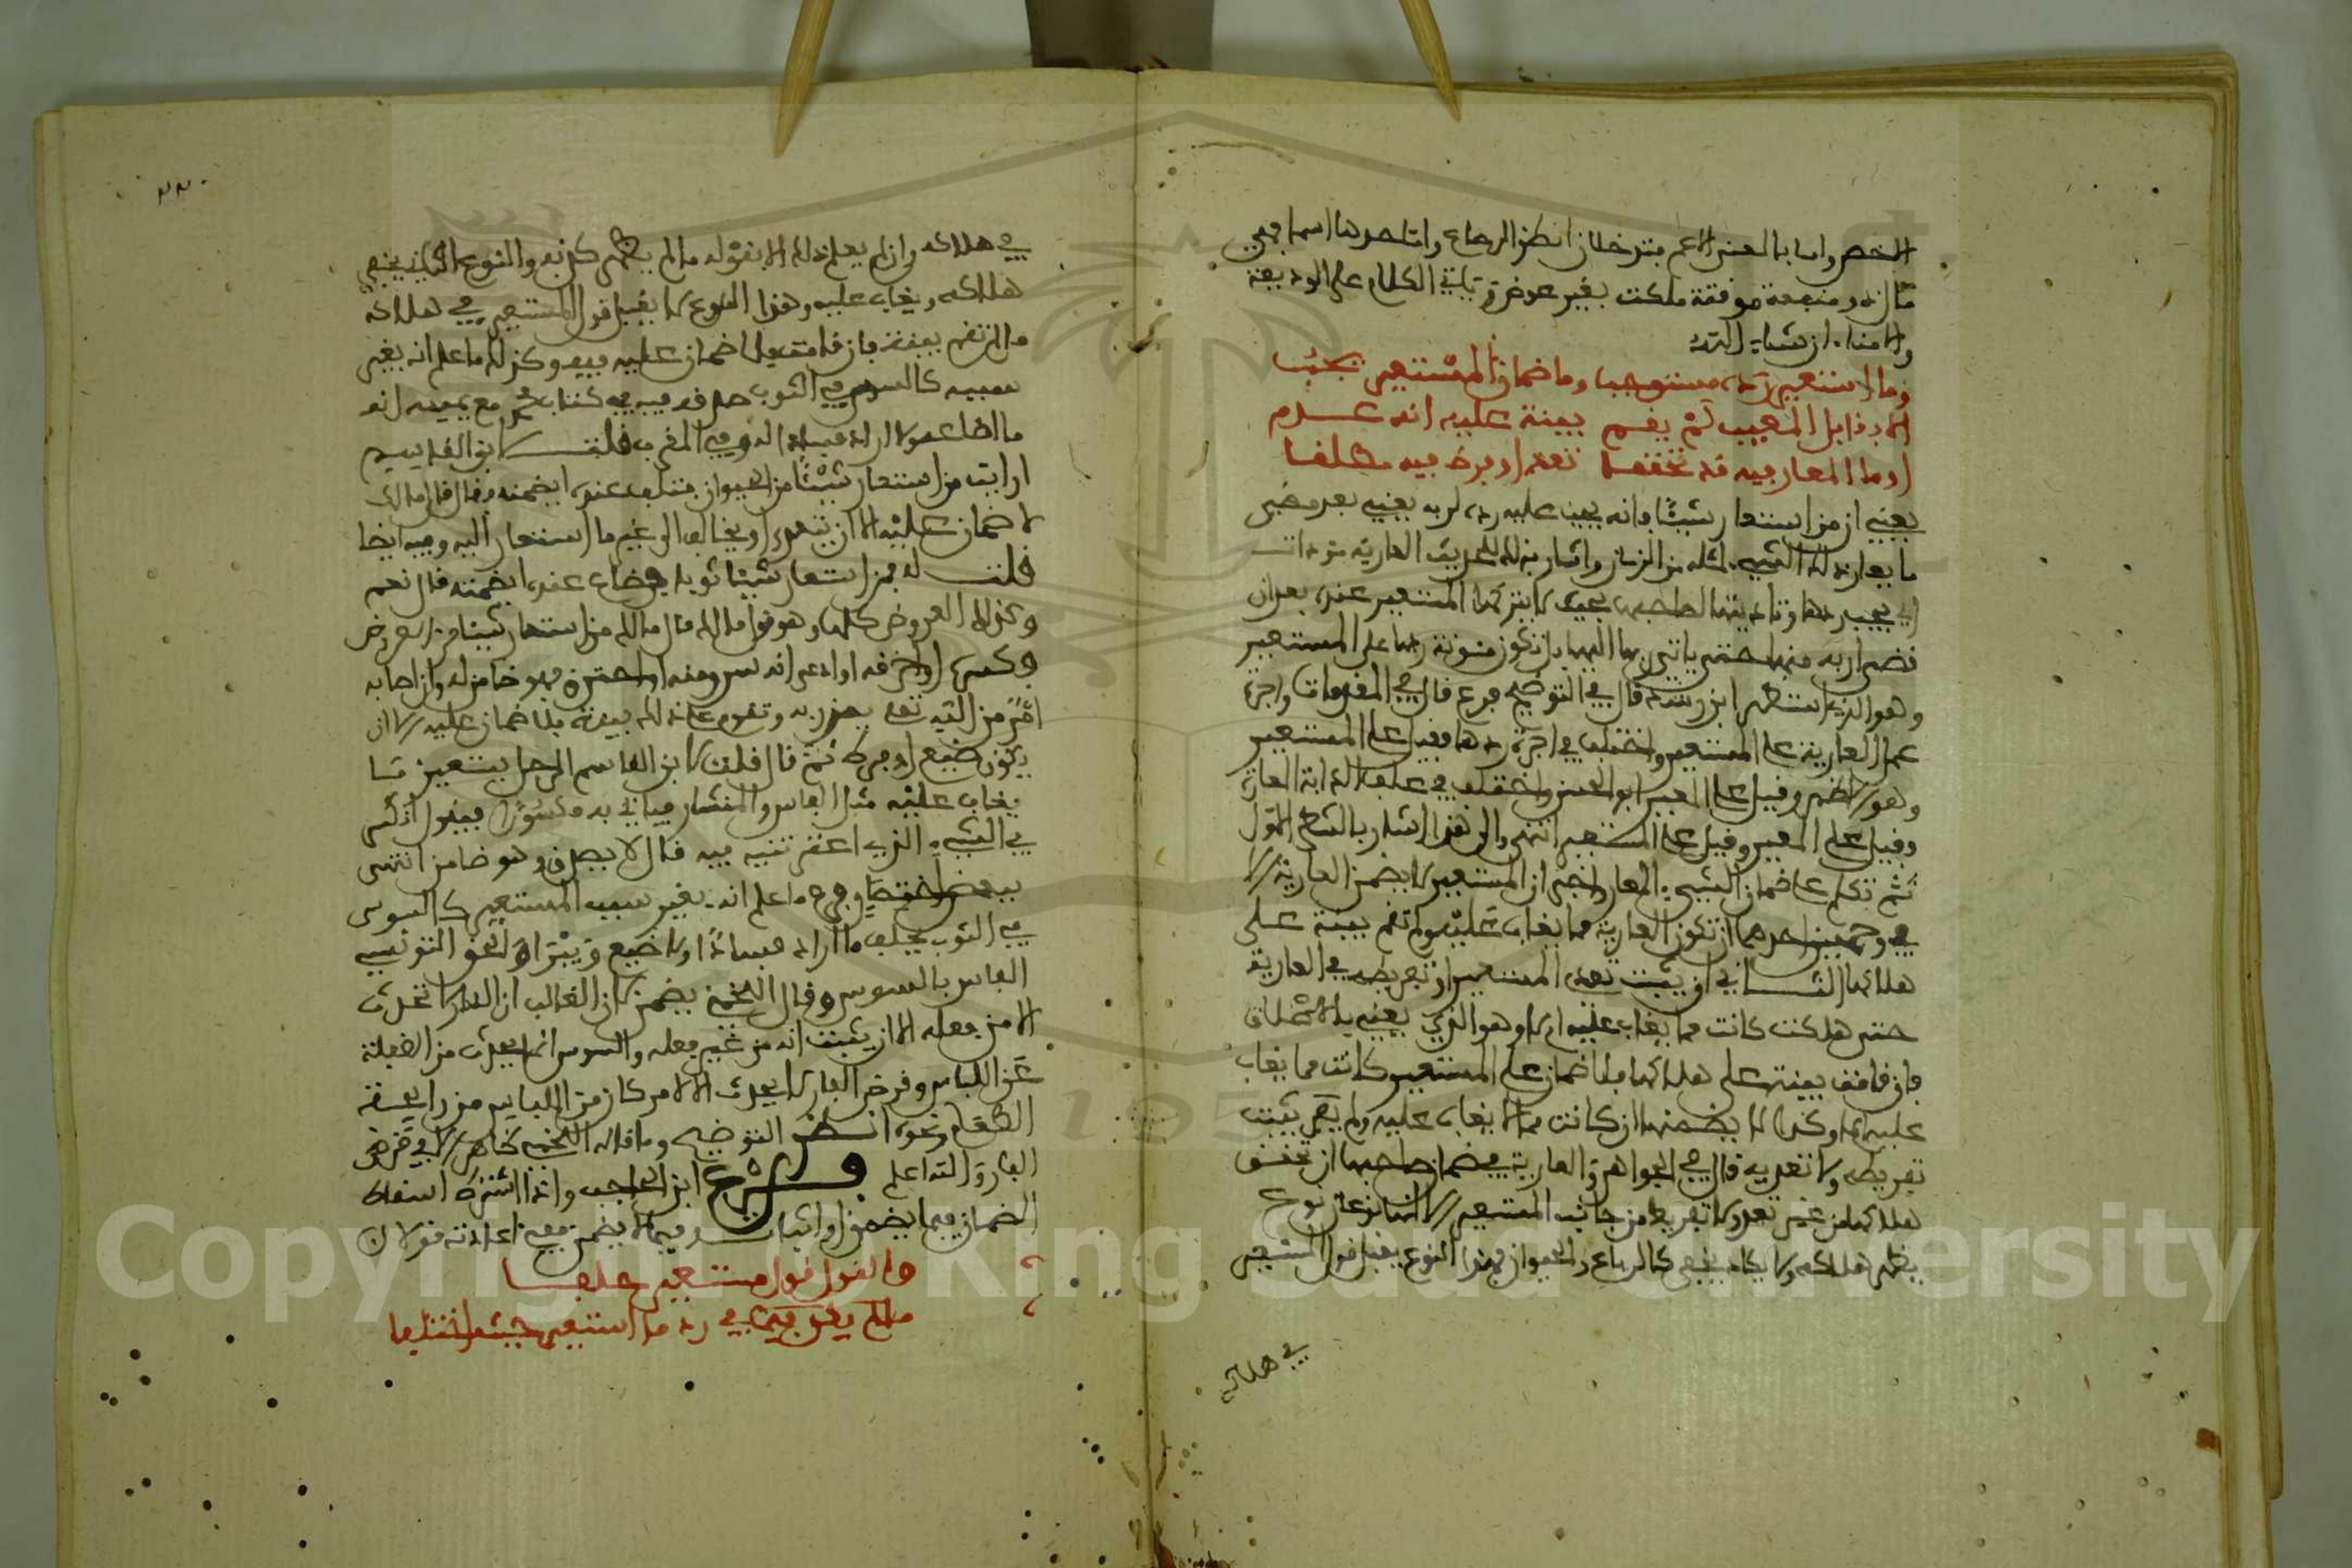 الاخص واما بالمعنى الاعم فتدخلان انظر الرصاع واما حدها اسما فهي
مال ذو منفعة موقتة ملكت بغير عوض وياتي الكلام على الوديعة
والامناء ان شاء الله
وما استعير رده مستوجب وما ضمان المستعير يجب
الا بقابل المغيب لم يقم بينة عليه انه عدم
او ما المعار فيه قد تحققا تعد او فرط فيه مطلقا
يعني ان من استعار شيئا فانه يجب عليه رده لربه يعني بعد مضي
ما يعار ذلك الشيء لمثله من الزمان واشار بذلك لحديث العارية موداة
اي يجب ردها وتاديتها لصاحبها بحيث لا يتركها المستعير عنده بعد ان
قضى اربه منها حتى ياتي ربها اليها بل تكون مئونة ردها على المستعير
وهو الذي استظهر ابن رشد قال في التوضيح فرع قال في المقدمات واجرة
حمل العارية على المستعير واختلف في اجرة ردها فقيل على المستعير
وهو الاظهر وقيل على المعير ابو الحسن واختلف في علف الدابة المعارة
فقيل على المعير وقيل على المستعير انتهى والى هذا اشار بالشطر الاول
ثم تكلم على ضمان الشيء المعار واخبر ان المستعير لا يضمن العارية الا
في وجهين احدهما ان تكون العارية مما يغاب عليه ولم تقم بينة على
هلاكها الثاني ان يثبت تعدي المستعير او تفريطه في العارية
حتى هلكت كانت مما يغاب عليه ام لا وهو الذي يعني بالاطلاق
فان قامت بينة على هلاكها فلا ضمان على المستعير كانت مما يغاب
عليه ام لا وكذا لا يضمنها ان كانت مما لا يغاب عليه ولم يثبت
تفريطه ولا تعديه قال في الجواهر والعارية في ضمان صاحبها ان تحقق
هلاكها من غير تعد ولا تفريط من جانب المستعير الا انها نوعان نوع
يظهر هلاكه ولا يكاد يخفى كالرباع والحيوان فهذا النوع يقبل قول المستعير
في هلاكه
في هلاكه وان لم يعلم ذلك الا بقوله ما لم يظهر كذبه والنوع الثاني يخفى
هلاكه ويغاب عليه وهذا النوع لا يقبل قول المستعير في هلاكه
ما لم تقم بينة فان قامت فلا ضمان عليه فيه وكذلك ما علم انه بغير
سببه كالسوس في الثوب مع يمينه انه
ما اضاع ولا اراد فسادا له وفي المقرب قلت لابن القاسم
ارايت من استعار شيئا من الحيوان فتلف عنده ايضمنه قال قال مالك
لا ضمان عليه الا ان يتعدى او يخالف الى غير ما استعار اليه وفيه ايضا
قلت له فمن استعار شيئا ثوبا فضاع عنده ايضمنه قال نعم
وكذلك العروض كلها وهو قول مالك قال مالك من استعار شيئا من العروض
فكسره او خرقه او ادعى انه سرق منه او احترق فهو ضامن له وان اصابه
امر من الله تعالى بعذر به وتقوم على ذلك بينة فلا ضمان عليه الا ان
يكون ضيع او فرط ثم قال قلت لابن القاسم الرجل يستعير ما
يغاب عليه مثل الفاس والمنشار فياتي به مكسورا فيقول انكسر
في الشيء الذي اعرتنيه فيه قال لا يصدق وهو ضامن انتهى
ببعض اختصار وفرع ما علم انه بغير سبب المستعير كالسوس
في الثوب يحلف ما اراد فسادا ولا ضيع ويبرا والحق التونسي
الفار بالسوس وقال اللخمي يضمن لان الغالب ان الفار لا تحدث
الا من فعله الا ان يثبت انه من غير فعله والسوس انما يحدث من الغفلة
عن اللباس وقرض الفار لا يحدث الا لامر كان من اللباس من رائحة
الطعام ونحوه انظر التوضيح وما قاله اللخمي ظاهر الا في قرض
الفار والله اعلم فرع ابن الحاجب واذا اشترط اسقاط
الضمان فيما يضمن او اثباته فيما لا يضمن ففي افادته قولان
والقول قول مستعير حلفا
ما لم يكن فيما في رد ما استعير حيث اختلفا